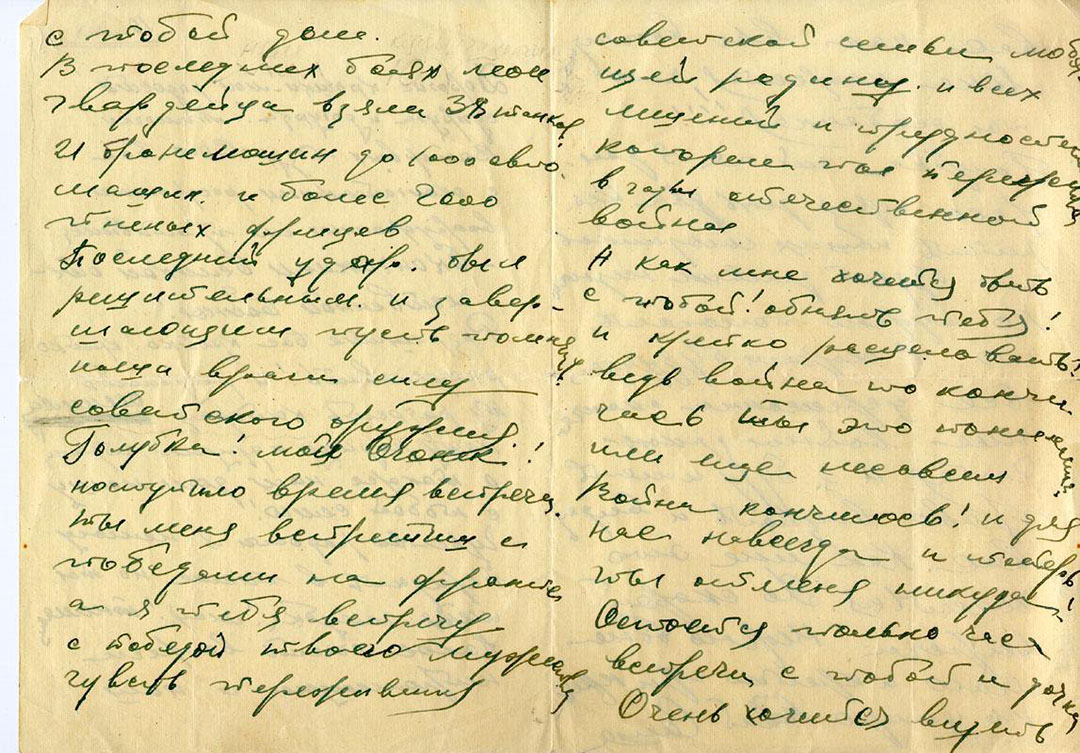 с тобой дом.
В последних боях мои
гвардейцы взяли 38 танков
и бронемашин до 1000 авто
машин. и более 2000
пленых фрицев
Последний удар. был
решительным. и завер-
шающим пусть помнят
наши враги силу
советского оружия.
Голубка! моя Огоник!
наступило время встречи.
ты меня встретиш с
победами на фронте
а я тебя встречу
с победой твоего мужества
чувств пережившия
советской семьи люб
щей родину. и всех
лишений и трудностей
которые ты пережила
в годы отечественной
войны
А как мне хочется быть
с тобой! обнять тебя!
и крепко расцеловать!
ведь война то кончи
лась ты это понимаеш?
или еще несовсем
Война кончилось! и для
нас навсегда и теперь
ты отменя никуда!
Остается только час
встречи с тобой и дочкой
Очень хочется видить